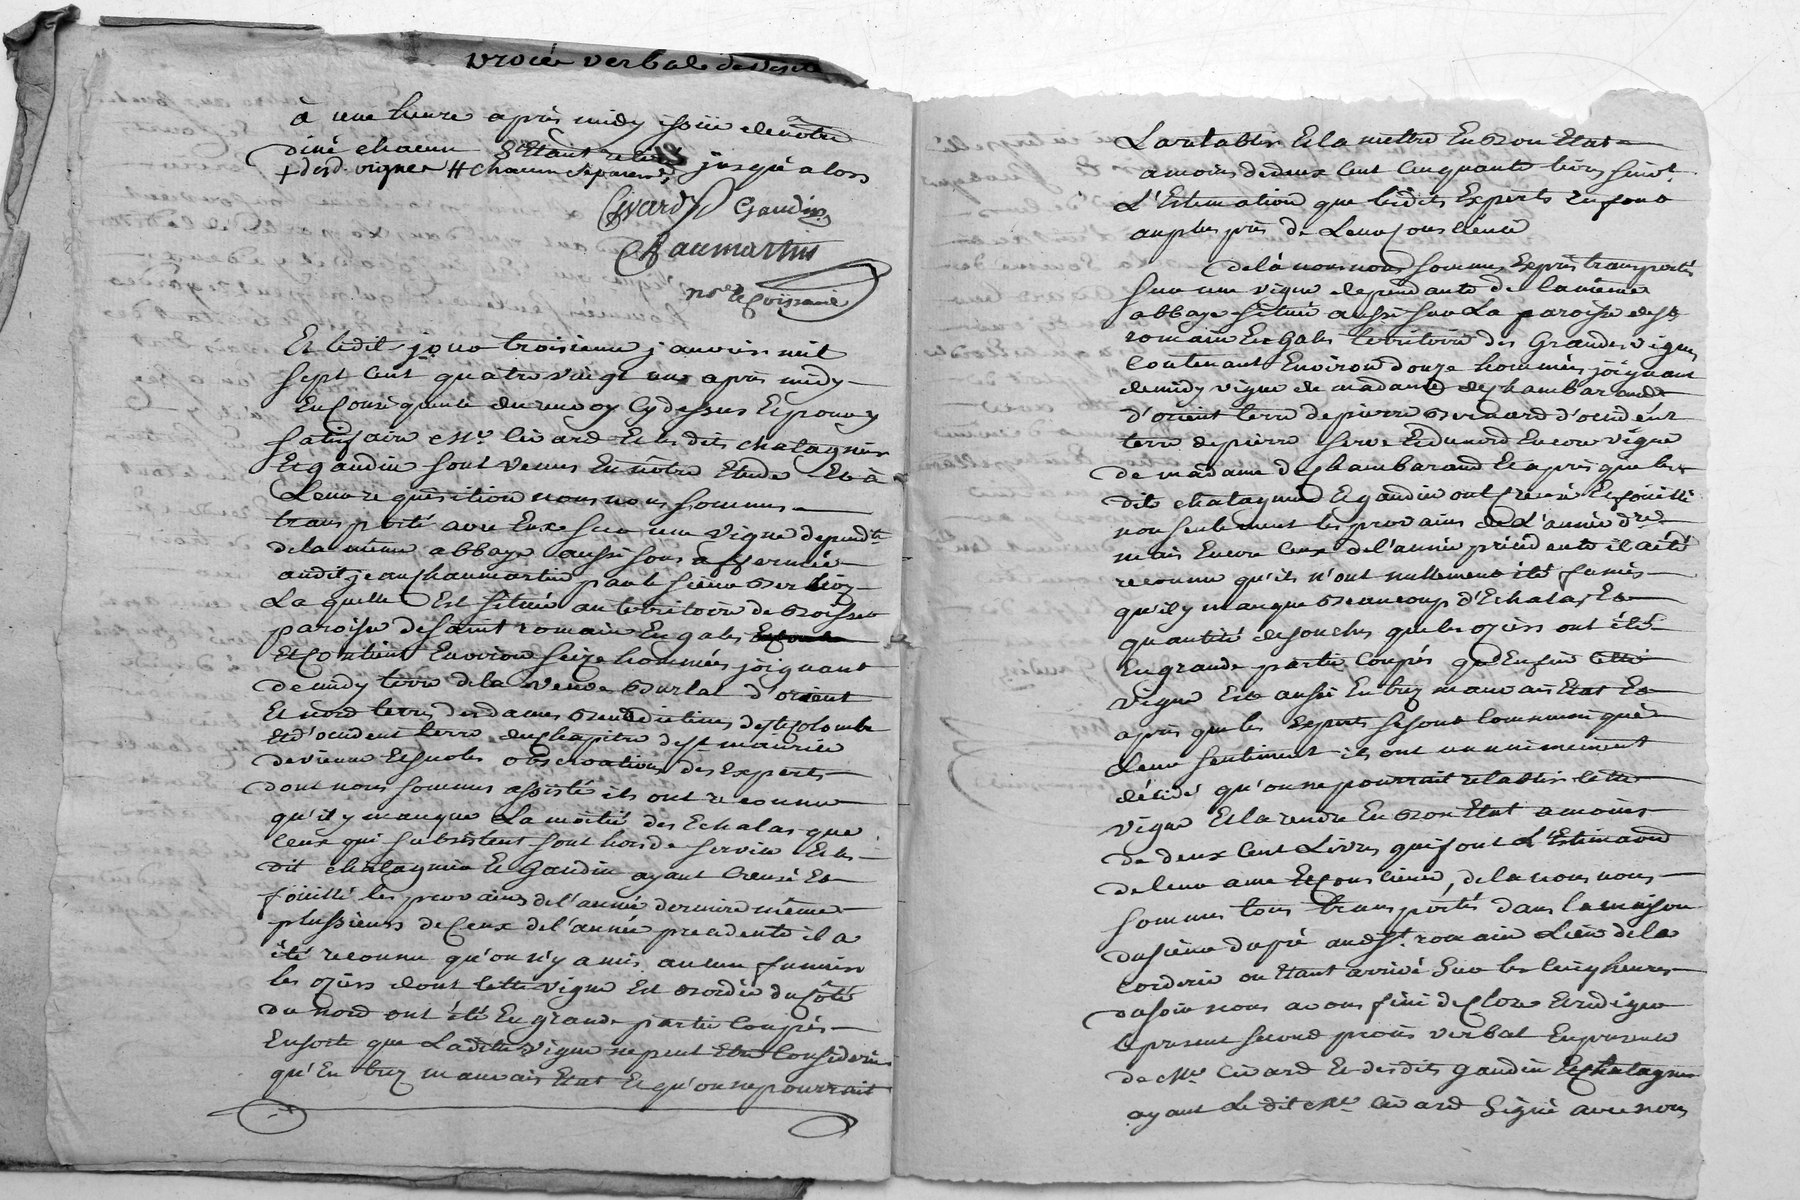 procès verbal de visite
à une heure après midy issüe de notre
diné chacun s'étant retiré jusqu'à lors
+ desd. vignes # chacun séparemt.
Civard Gaudin
Chaumartin
Nre Commissaire
Et ledit jour troisieme janvier mil
sept cent quatre vingt un après midy
En Consequence du renvoy Cy dessus Et pour y
satisfaire Mre. Civard Et les dits chatagnier
Et gaudin sont venus En nôtre Etude Et à
Leur requisition nous nous sommes
transporté avec Eux sur une vigne dependte
de la même abbaye aussi sous affermée
audit jean chaumartin par le sieur Berlioz
La quelle Est située au territoire de
paroisse de saint romain En gales
Et Contient Environ seize hommées joignant
de midy terre de la veuve Burlat d'orient
Et nord terres des dames Benedictines de ste Colombe
Et d'occident terre du chapitre de st maurice
de vienne Et sur les observations des Experts
dont nous sommes assisté ils ont reconnu
qu'il y manque La moitié des Echalas que
Ceux qui subsistent sont hors de service Et les
dit chatagnier Et Gaudin ayant Creusé Et
fouillé les provains de l'année derniere même
plussieurs de Ceux de l'année precedente il a
été reconnu qu'on n'y a mis aucun fumier
les oziers dont cette vigne Est bordée du Côté
du nord ont été En grande partie Coupés
Ensorte que Ladite vigne ne peut Etre Considerée
qu'En trez mauvais Etat Et qu'on ne pourrait
La retablir Et la mettre En Bon Etat
a moins de deux Cent Cinquante livres suivt.
L'Estimation que lesdits Experts En font
au plus près de Leur Conscience
de là nous nous sommes Exprès transportés
sur une vigne dependante de la même
abbaye située aussi sur La paroisse de st
romain En Gales territoire des Grandes vignes
Contenant Environ douze hommées joignant
de midy vigne de madame de Chambarand
d'orient terre de pierre Bernard d'occident
terre de pierre serve Et du nord Encore vigne
de madame de Chambarand Et après que les
dits chatagnier Et gaudin ont Creusé Et foüillé
non seulement les provains de L'année dre
mais Encore Ceux de l'année précédente il a été
reconnu qu'ils n'ont nullement été fumés
qu'il y manque Beaucoup d'Echalas Et
quantité de souches que les oziers ont été
En grande partie Coupés qu'Enfin cette
vigne Est aussi En trez mauvais Etat Et
après que les Experts se sont Communiqué
Leur sentiment ils ont unanimement
décidé qu'on ne pourrait retablir cette
vigne Et la rendre En Bon Etat a moins
de deux Cent Livres qu'ils ont L'Estimaond
de leur ame Et Conscience, de la nous nous
sommes tous transportés dans la maison
du sieur dupré audit st. romain Lieu de la
Corderie ou Etant arrivé Sur les Cinq heures
du soir nous avons fini de Clore Et rediger
le present second procès verbal En presence
de Mre. Civard Et des dits gaudin Et chatagnier
ayant Le dit Mre. Civard Signé avec nous